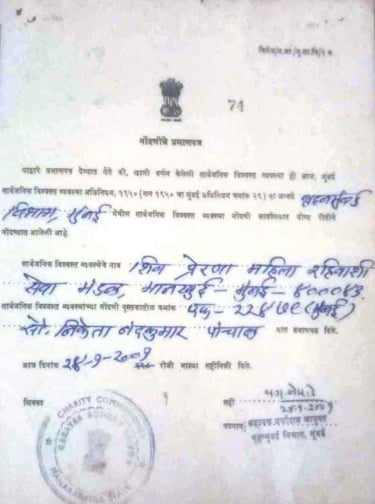 74
नोंदणीचे प्रमाणपत्र
याद्वारे प्रमाणपत्र देण्यात येते की, खाली वर्णन केलेली सार्वजनिक विश्वस्त व्यवस्था ही आज, मुंबई
सार्वजनिक विश्वस्त व्यवस्था अधिनियम, १९५० (सन १९५० चा मुंबई अधिनियम क्रमांक २९) या अन्वये बृहन्मुंबई
विभाग, मुंबई येथील सार्वजनिक विश्वस्त व्यवस्था नोंदणी कार्यालयात योग्य रीतीने
नोंदण्यात आलेली आहे.
सार्वजनिक विश्वस्त व्यवस्थेचे नाव शिव प्रेरणा महिला रहिवाशी
सेवा मंडळ, मानखुर्द - मुंबई - ४०००४३.
सार्वजनिक विश्वस्त व्यवस्थांच्या नोंदणी पुस्तकातील क्रमांक (मुंबई)
सौ. नंदकुमार पांचाळ यांस प्रमाणपत्र दिले.
आज दिनांक २४-९-२००१ रोजी माझ्या सहीनिशी दिले.
शिक्का
सही
२४-९-२००१
पदनाम
बृहन्मुंबई विभाग, मुंबई
CHARITY COMMISSIONER
GREATER BOMBAY
MAHARASHTRA STATE